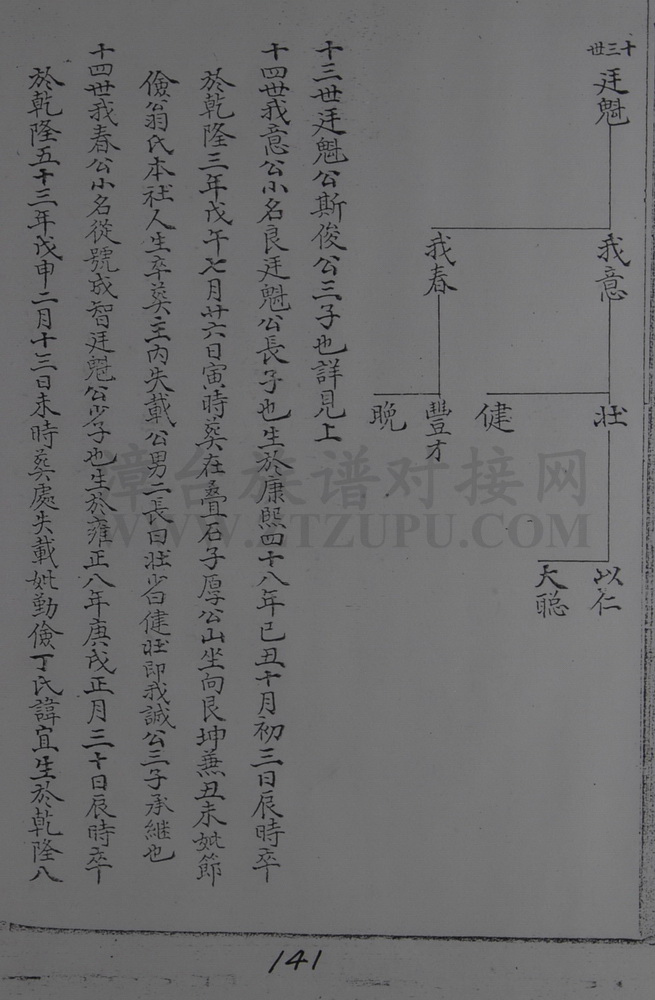 十三世
廷魁
我意
我春
壯
健
豐才
晚
以仁
大聰
十三世廷魁公斯俊公三子也詳見上
十四世我意公小名良廷魁公長子也生於康熙四十八年己丑十月初三日辰時卒
於乾隆三年戊午七月廿六日寅時葬在疊石子厚公山坐向艮坤兼丑未妣節
儉翁氏本社人生卒葬主內失載公男二長曰壯少曰健壯即我誠公三子承繼也
十四世我春公小名從號成智廷魁公少子也生於雍正八年庚戌正月三十日辰時卒
於乾隆五十三年戊申二月十三日未時葬處失載妣勤儉丁氏諱宜生於乾隆八
章台族谱对接网
WWW.ZTZUPU.COM
141